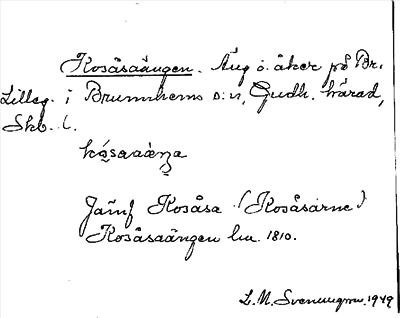 Kosåsaängen. Äng o. åker på Br.
Lilleg. i Brunnhems s:n, Gudh. härad,
Skb. l.
kósaaänga
Jämf Kosåsa (Kosåsarne)
Kosåsaängen lm. 1810.
1949